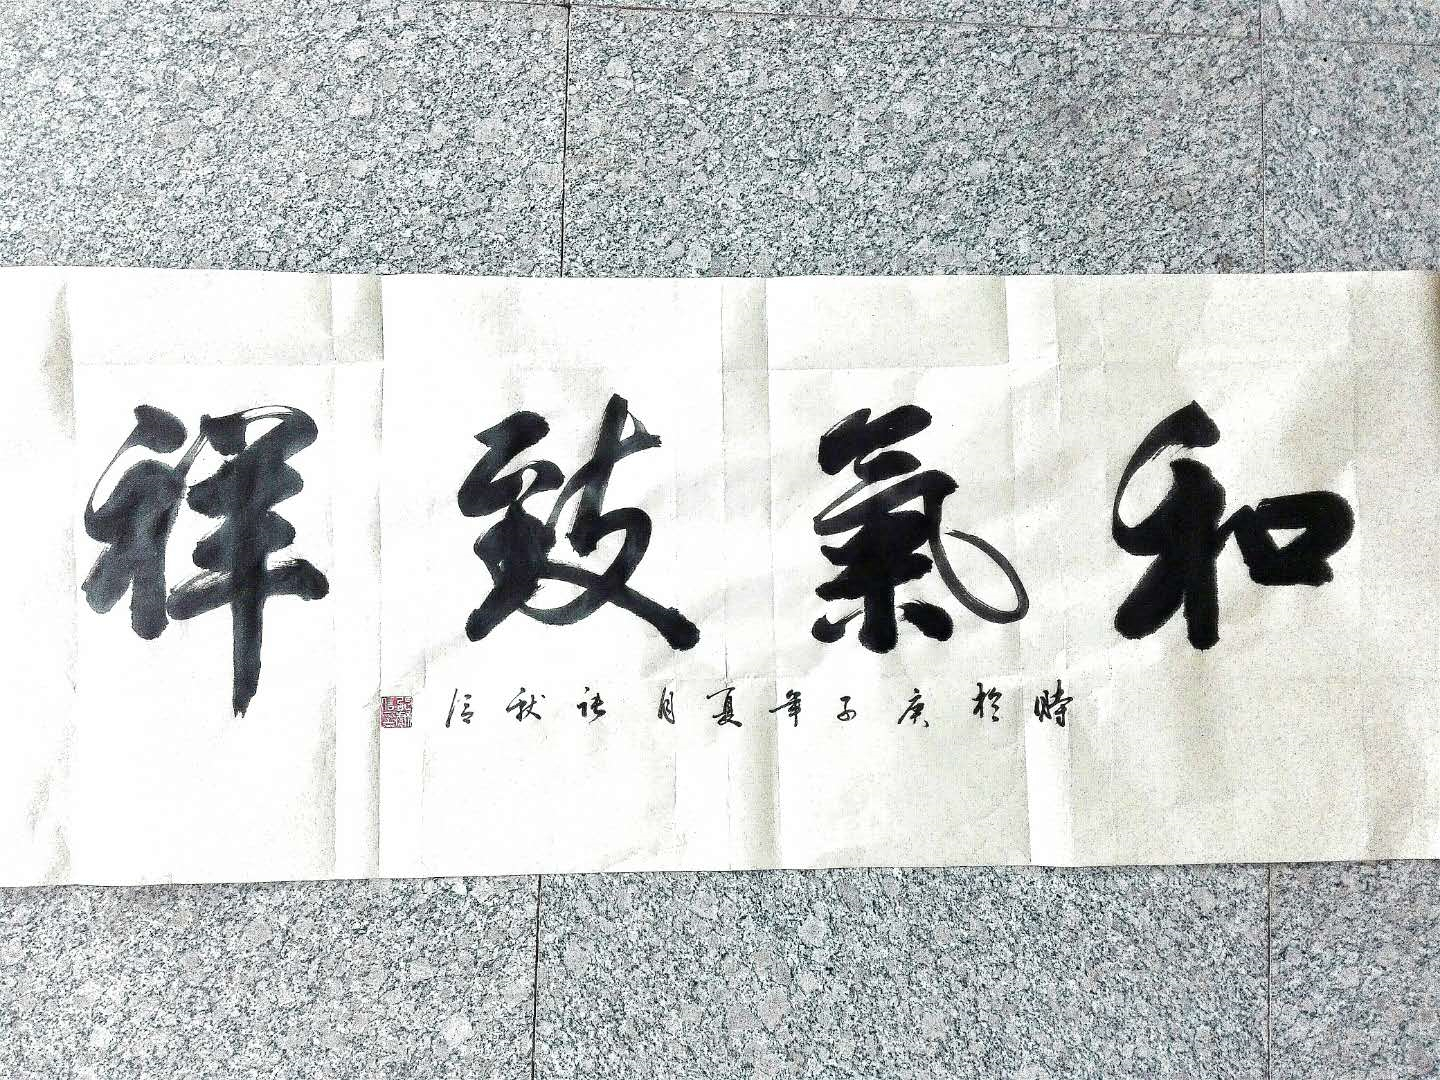 和氣致祥
時於庚子年夏月張秋信